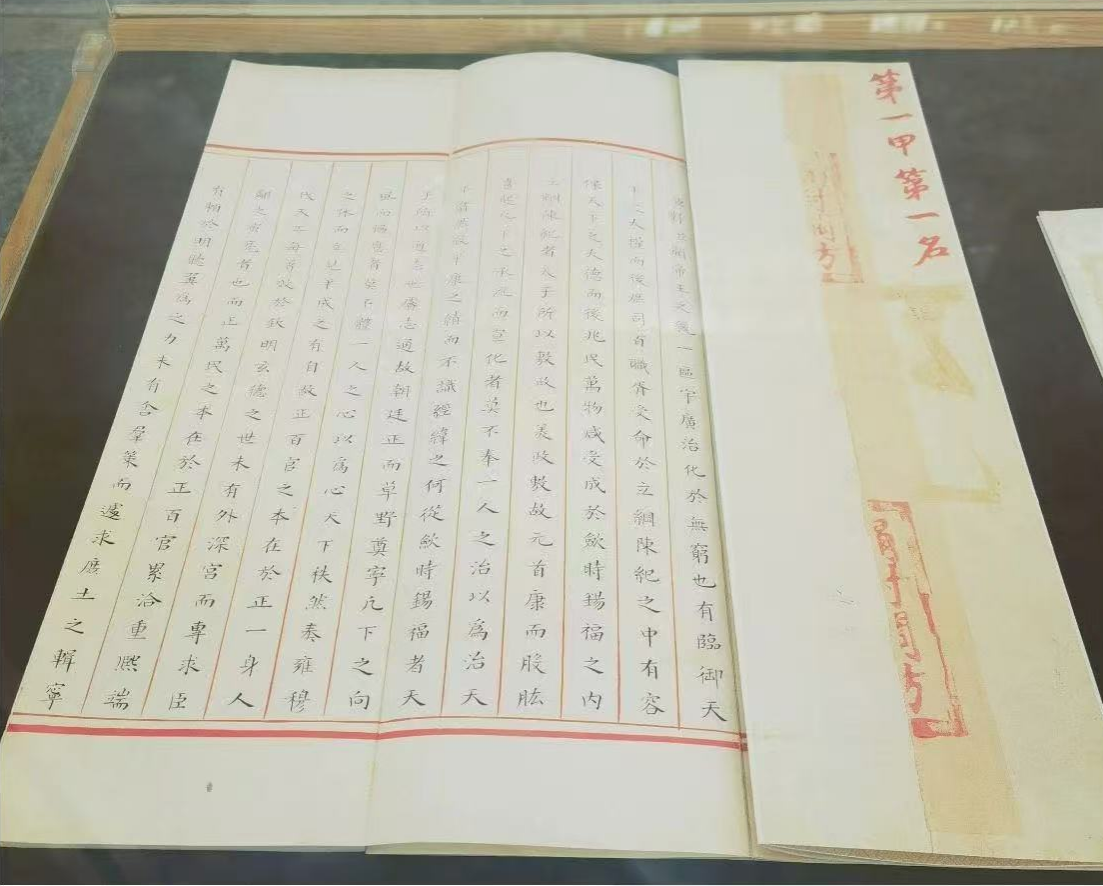 第一甲第一名
臣對臣聞帝王之一區宇廣治化於無窮也有臨御天
下之大權而後庶司百職胥受命於立綱陳紀之中有容
保天下之大德而後兆民萬物咸受成於歛時錫福之內
立綱陳紀者天子所以敷政也美政敷故元首康而股肱
喜起天下之承流而宣化者莫不奉一人之治以為治天
平康之績而不識經緯之何從歛時錫福者天
子所以志也志通故朝廷正而草野奠寧凡下之向
風而者莫不體一人之心以為心天下秩然奏雍穆
之休而成之有自故正百官之本在於正一身人
代天工每首於欽明玄德之世未有外深宮而專求臣
鄰之者也而正萬民之本在於正百官累洽重熙端
有賴於明聽翼為之力未有舍羣策而遽求庶土之輯寧